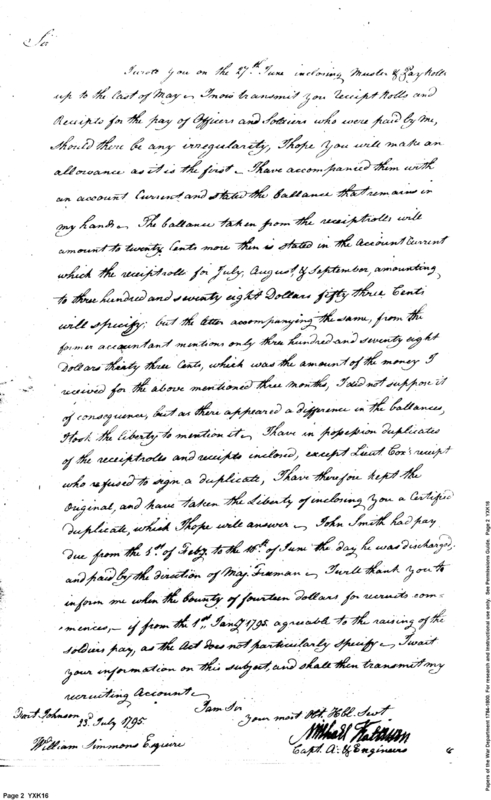 Sir
I wrote you on the 27th June inclosing Muster & Pay Rolls
up to the last of May. I now transmit you receipt Rolls and
Receipts for the pay of Officers and Soldiers who were paid by me,
Should there be any irregularity, I hope you will make an
allowance as it is the first. I have accompanied them with
an account Current and stated the ballance that remains in
my hands. The ballance taken from the receiptrolls will
amount to twenty Cents more then is stated in the Account Current
which the receiptrolls for July, August & September, amounting
to three hundred and seventy eight Dollars fifty three Cents
will specify; but the letter accompanying the same, from the
former accountant mentions only three hundred and seventy eight
Dollars thirty three Cents, which was the amount of the money I
received for the above mentioned three months, I did not suppose it
of consequence, but as there appeared a difference in the ballances,
I took the liberty to mention it. I have in possession duplicates
of the receiptrolls and receipts inclosed, except Lieut Cox's receipt
who refused to sign a duplicate, I have therefore kept the
Original, and have taken the Liberty of inclosing you a Certified
duplicate, which I hope will answer. John Smith had pay
due from the 1st of Feby to the 16th of June the day he was discharged,
and paid by the direction of Maj. Freeman. I will thank you to
inform me when the bounty of fourteen dollars for recruits com-
mences, if from the 1st Jany 1795 agreeable to the raising of the
soldiers pay, as the Act does not particularly specify. I wait
your information on this subject, and shall then transmit my
recruiting Account.
I am Sir
your most Obt. Hbl. Servt
Fort Johnson
23d July 1795
Michael Kalteisen
Capt. A. & Engineers
William Simmons Esquire
Page 2 YXK16
Papers of the War Department 1784-1800. For research and instructional use only. See Permissions Guide. Page 2 YXK16